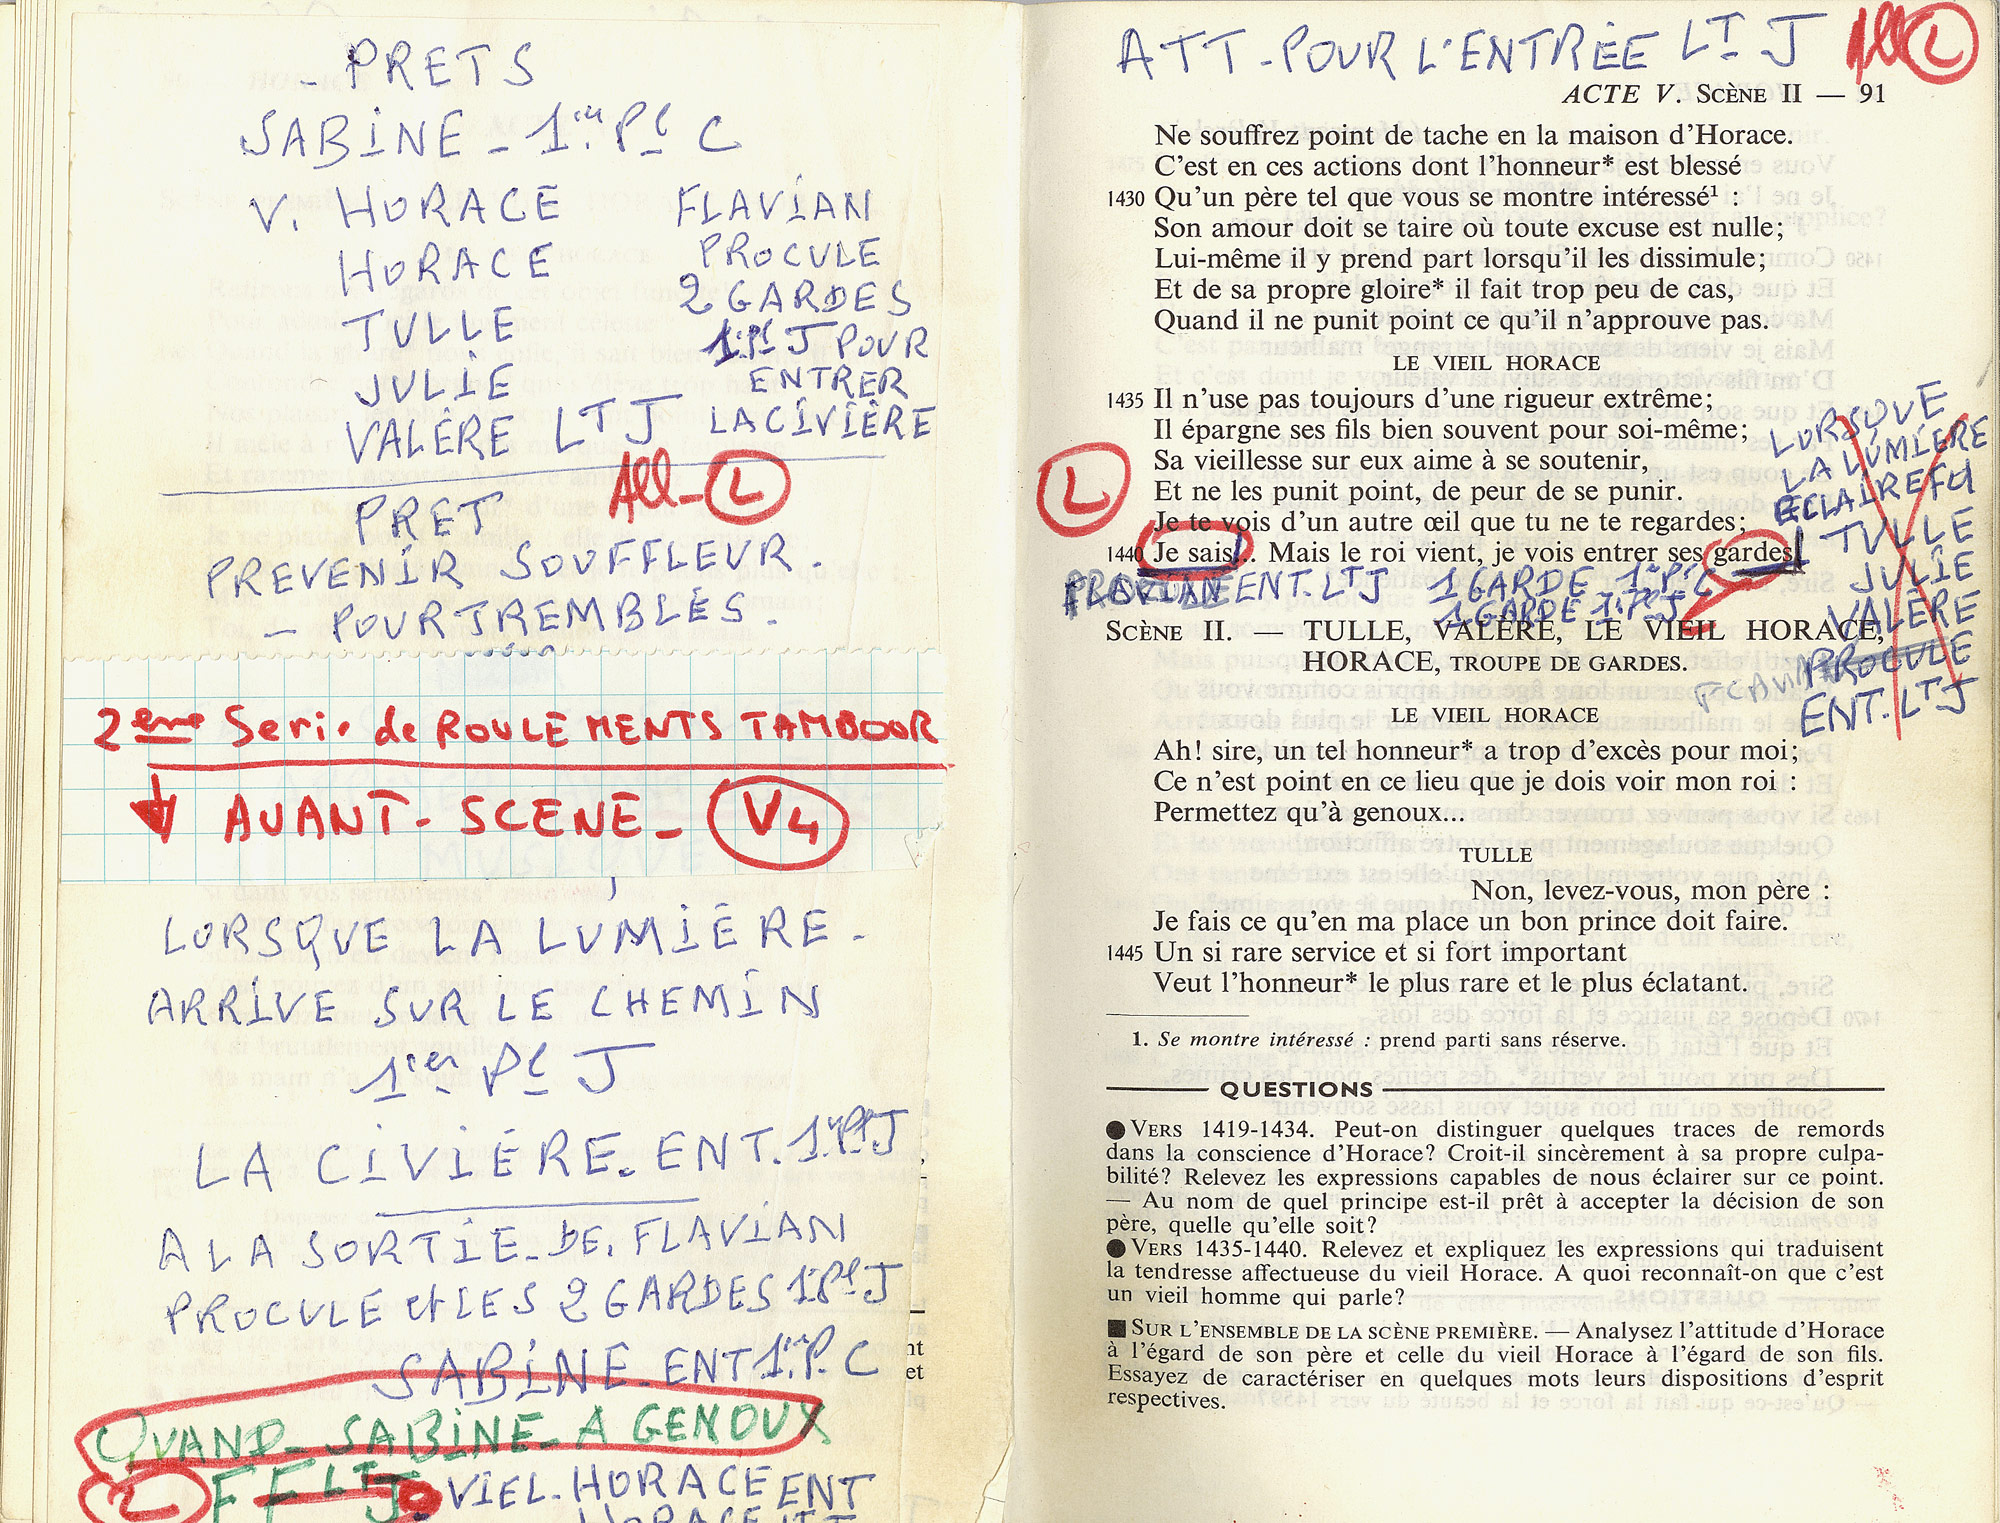 - PRETS
SABINE - 1er Pl C
V. HORACE
HORACE
TULLE
JULIE
VALÈRE LT J
FLAVIAN
PROCULE
2 GARDES
1er Pl J POUR
ENTRER
LA CIVIÈRE
All - L
PRET
PREVENIR SOUFFLEUR.
- POUR TREMBLÉS.
2ème Serie de ROULEMENTS TAMBOUR
↓ AVANT-SCENE - V4
LORSQUE LA LUMIÈRE -
ARRIVE SUR LE CHEMIN
1er Pl J
LA CIVIÈRE. ENT. 1er Pl J
A LA SORTIE DE FLAVIAN
PROCULE et LES 2 GARDES 1er Pl J
SABINE - ENT 1er P. C
QUAND - SABINE - A GENOUX
L
VIEL. HORACE ENT
nt
et
ATT - POUR L'ENTRÉE LT J All L
ACTE V. SCÈNE II — 91
Ne souffrez point de tache en la maison d'Horace.
C'est en ces actions dont l'honneur* est blessé
1430 Qu'un père tel que vous se montre intéressé¹ :
Son amour doit se taire où toute excuse est nulle;
Lui-même il y prend part lorsqu'il les dissimule;
Et de sa propre gloire* il fait trop peu de cas,
Quand il ne punit point ce qu'il n'approuve pas.
LE VIEIL HORACE
1435 Il n'use pas toujours d'une rigueur extrême;
Il épargne ses fils bien souvent pour soi-même;
Sa vieillesse sur eux aime à se soutenir,
Et ne les punit point, de peur de se punir.
Je te vois d'un autre œil que tu ne te regardes;
1440 Je sais... Mais le roi vient, je vois entrer ses gardes.
L
LORSQUE
LA LUMIERE
ÉCLAIRE
TULLE
JULIE
VALÈRE
PROCULE
FLAVIAN
ENT. LT J
FLAVIAN ENT. LT J 1 GARDE 1er P. C
1 GARDE 1er Pl J
SCÈNE II. — TULLE, VALÈRE, LE VIEIL HORACE,
HORACE, TROUPE DE GARDES.
LE VIEIL HORACE
Ah! sire, un tel honneur* a trop d'excès pour moi;
Ce n'est point en ce lieu que je dois voir mon roi :
Permettez qu'à genoux...
TULLE
Non, levez-vous, mon père :
Je fais ce qu'en ma place un bon prince doit faire.
1445 Un si rare service et si fort important
Veut l'honneur* le plus rare et le plus éclatant.
1. Se montre intéressé : prend parti sans réserve.
QUESTIONS
● VERS 1419-1434. Peut-on distinguer quelques traces de remords
dans la conscience d'Horace? Croit-il sincèrement à sa propre culpa-
bilité? Relevez les expressions capables de nous éclairer sur ce point.
— Au nom de quel principe est-il prêt à accepter la décision de son
père, quelle qu'elle soit?
● VERS 1435-1440. Relevez et expliquez les expressions qui traduisent
la tendresse affectueuse du vieil Horace. A quoi reconnaît-on que c'est
un vieil homme qui parle?
■ SUR L'ENSEMBLE DE LA SCÈNE PREMIÈRE. — Analysez l'attitude d'Horace
à l'égard de son père et celle du vieil Horace à l'égard de son fils.
Essayez de caractériser en quelques mots leurs dispositions d'esprit
respectives.